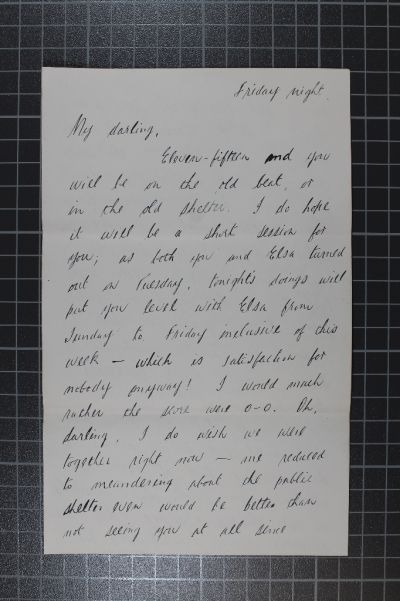 Friday night.
My darling,
Eleven-fifteen and you
will be on the old beat, or
in the old shelter. I do hope
it will be a short session for
you; as both you and Elsa turned
out on Tuesday, tonight's doings will
put you level with Elsa from
Sunday to Friday inclusive of this
week – which is satisfaction for
nobody anyway! I would much
rather the score were 0-0. Oh,
darling, I do wish we were
together right now – me reduced
to meandering about the public
shelter even would be better than
not seeing you at all since